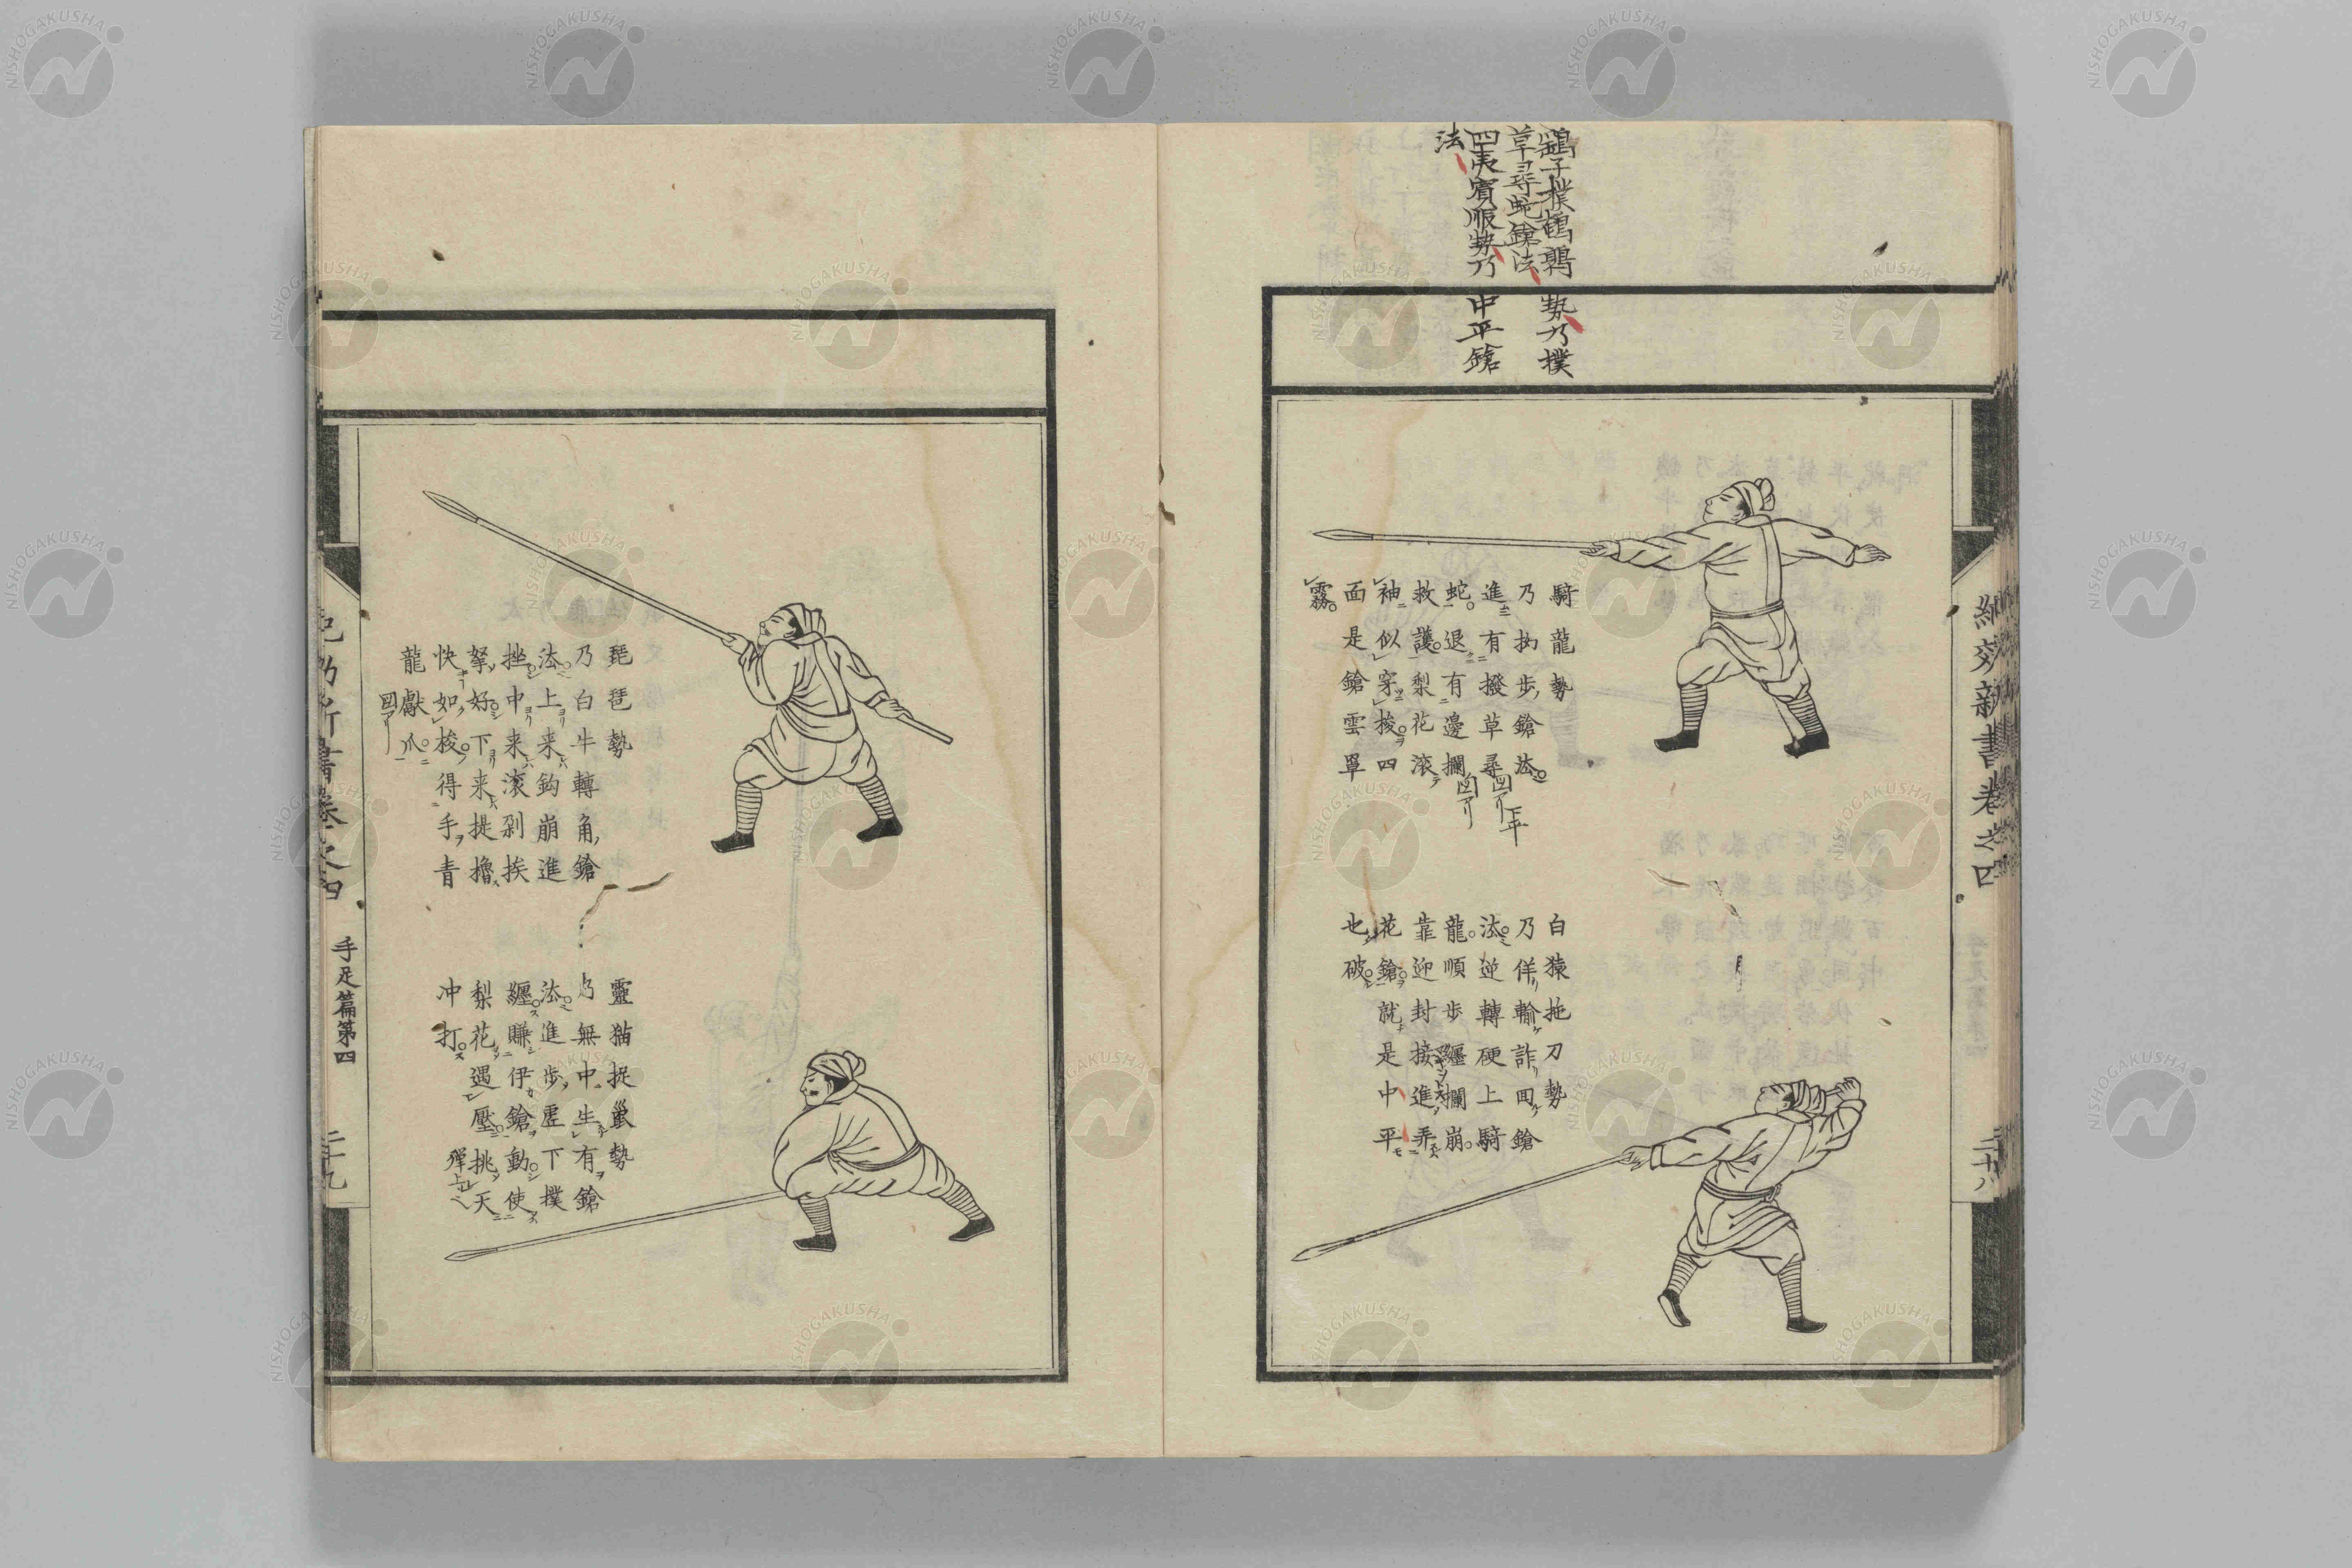 鷂子撲鵪鶉勢乃撲
草尋蛇鎗法
四夷賓服勢乃中平鎗
法
紀效新書卷之四
二十八
騎龍勢
乃拗步鎗法
進有撥草尋
蛇退有邊攔
救護梨花滚
袖似穿梭四
面是鎗雲罩
霧
白猿拖刀勢
乃佯輸詐囬鎗
法逆轉硬上騎
龍順步纏攔崩
靠迎封接進弄
花鎗就是中平
也破
琵琶勢
乃白牛轉角鎗
法上来鈎崩進
挫中来滚剁挨
拏好下来提擼
快如梭得手青
龍獻爪
靈猫捉鼠勢
乃無中生有鎗
法進步虚下撲
纏賺伊鎗動使
梨花遇壓挑天
冲打
紀效新書卷之四
手足篇第四
二十九
NISHOGAKUSHA